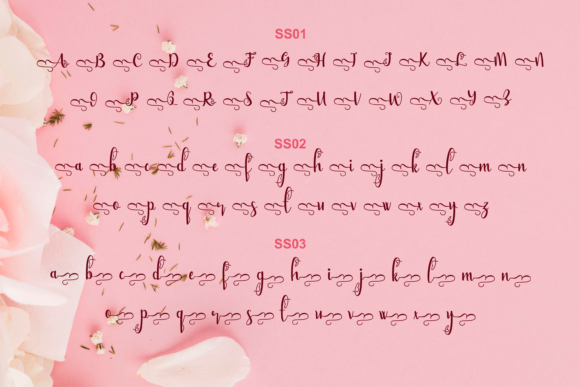 SS01
A B C D E F G H I J K L M N
O P Q R S T U V W X Y Z
SS02
a b c d e f g h i j k l m n
o p q r s t u v w x y z
SS03
a b c d e f g h i j k l m n
o p q r s t u v w x y